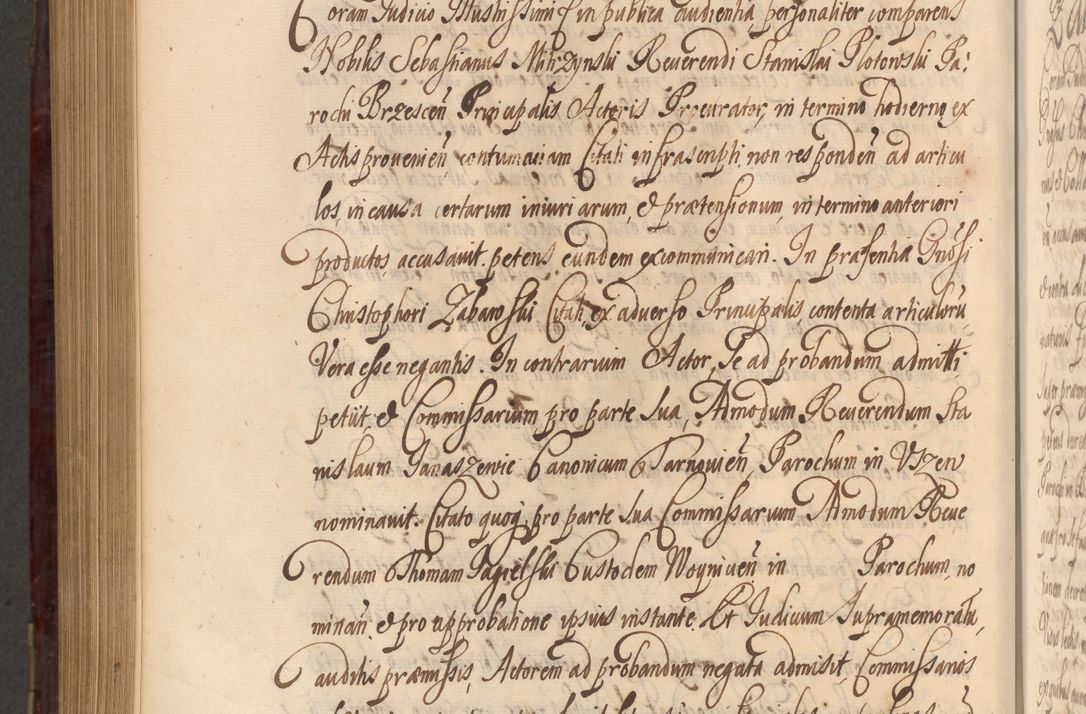 Coram Judicio Illustrissimi & in publica audientia personaliter comparens
Nobilis Sebastianus Mirzynski Reverendi Stanislai Plotowski Pa:
rochi Brzescen̄ Principalis Actoris Procurator, in termino hodierno ex
Actis provenien̄ contumaciam Citati infrascripti, non responden̄ ad articu
los, in causa certarum iniuriarum, & prætensionum, in termino anteriori
productos, accusavit. petens eundem excommunicari. In præsentia Gnōsi
Christophori Zabawski Citati, ex adverso Principalis contenta articulorū
Vera esse negantis. In contrarium Actor, se ad probandum admitti
petiit, & Commissarium pro parte sua, Admodum Reverendum Sta
nislaum Janaszewic Canonicum Tarnovien̄, Parochum in Uszew
nominavit. Citato quoq; pro parte sua Commissarium Admodum Reve
rendum Thomam Jagielski Custodem Woynicen̄, in Parochum, no
minan̄. & pro approbatione ipsius instante. Et Judicium supramemoratū,
auditis præmissis, Actorem ad probandum negata admisit, Commissarios